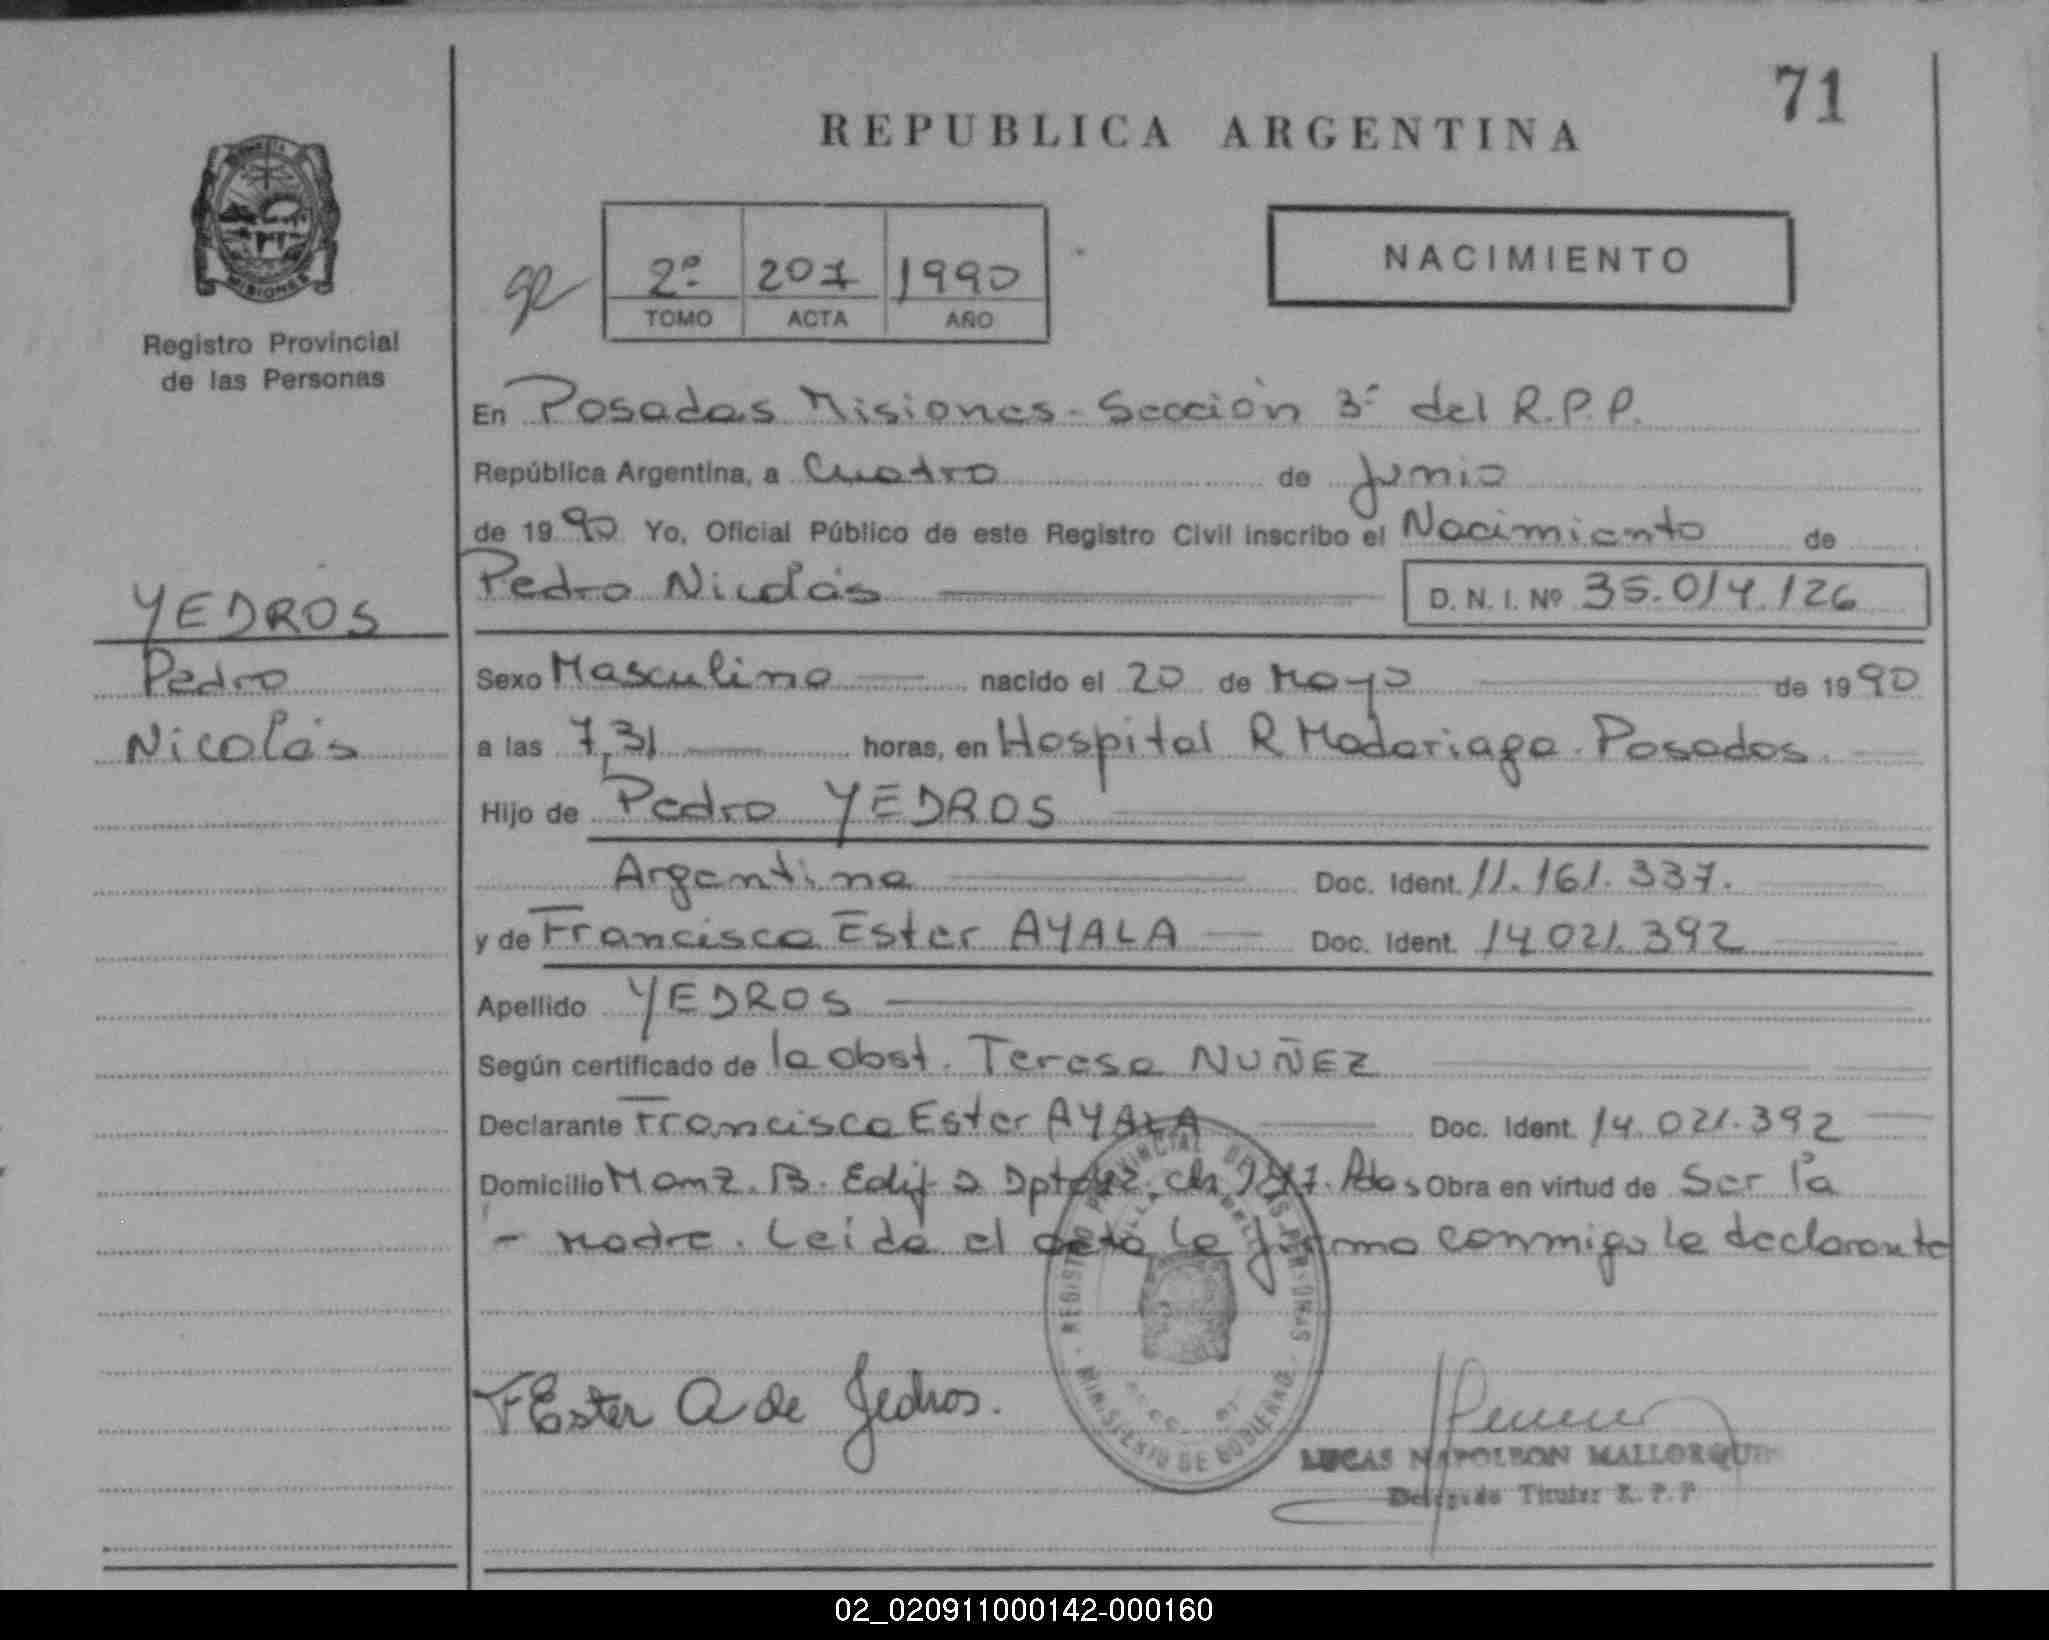 71
REPUBLICA ARGENTINA
MISIONES
Registro Provincial
de las Personas
2º 207 1990
TOMO ACTA AÑO
NACIMIENTO
En Posadas Misiones - Sección 3ª del R.P.P.
República Argentina, a Cuatro de Junio
de 1990 Yo, Oficial Público de este Registro Civil inscribo el Nacimiento de
Pedro Nicolás D. N. I. Nº 35.014.126
YEDROS
Pedro
Nicolás
Sexo Masculino nacido el 20 de Mayo de 1990
a las 7,31 horas, en Hospital R Madariaga. Posadas.
Hijo de Pedro YEDROS
Argentina Doc. Ident. 11.161.337.
y de Francisca Ester AYALA Doc. Ident. 14.021.392
Apellido YEDROS
Según certificado de la obst. Teresa NUÑEZ
Declarante Francisca Ester AYALA Doc. Ident. 14.021.392
Domicilio Manz. B. Edif. Pdas Obra en virtud de Ser la
- madre. Leída el acta la firma conmigo la declarante
REGISTRO PROVINCIAL DE LAS PERSONAS
MINISTERIO DE GOBIERNO
F Ester A de Yedros.
LUCAS NAPOLEON MALLORQUIN
Delegado Titular R. P. P
02_020911000142-000160